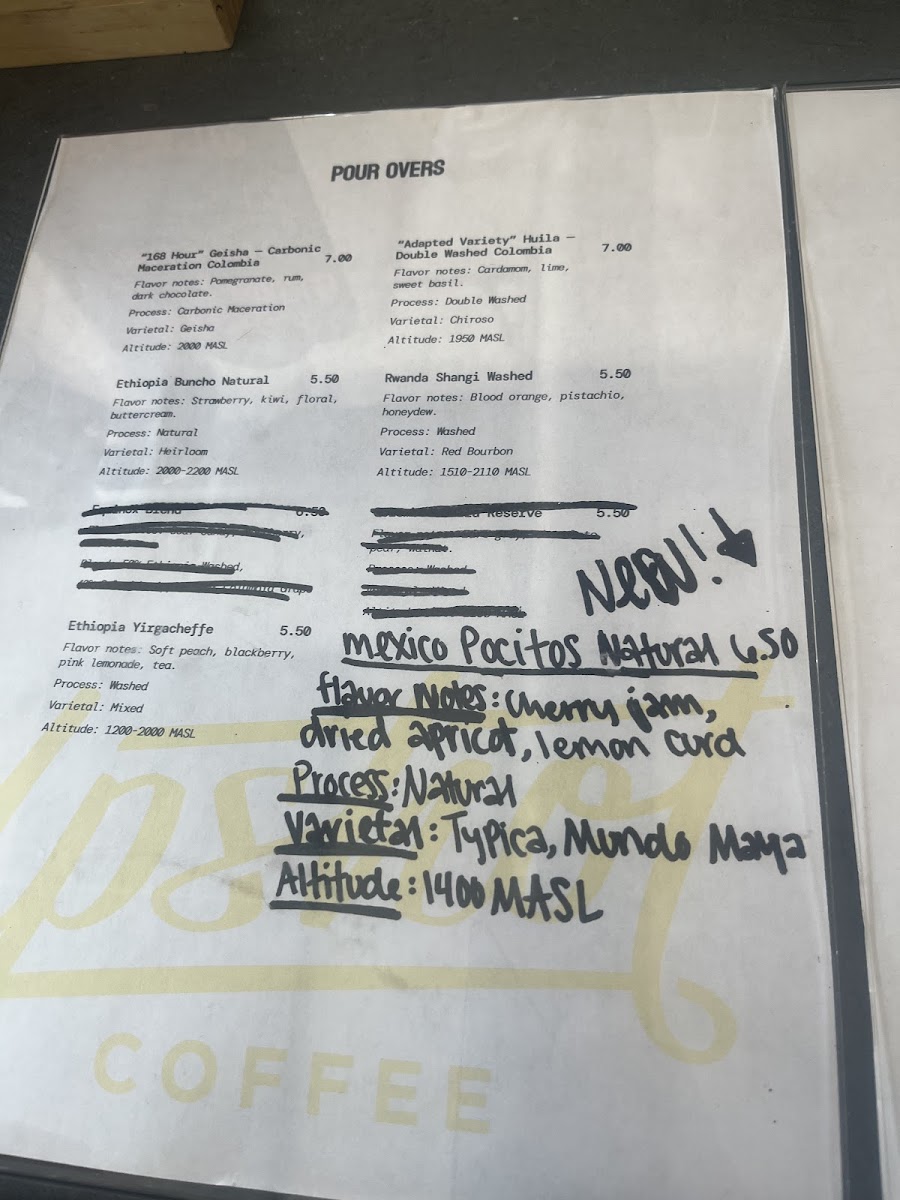 POUR OVERS
"168 Hour" Geisha — Carbonic
Maceration Colombia
7.00
Flavor notes: Pomegranate, rum,
dark chocolate.
Process: Carbonic Maceration
Varietal: Geisha
Altitude: 2000 MASL
"Adapted Variety" Huila —
Double Washed Colombia
7.00
Flavor notes: Cardamom, lime,
sweet basil.
Process: Double Washed
Varietal: Chiroso
Altitude: 1950 MASL
Ethiopia Buncho Natural 5.50
Flavor notes: Strawberry, kiwi, floral,
buttercream.
Process: Natural
Varietal: Heirloom
Altitude: 2000-2200 MASL
Rwanda Shangi Washed 5.50
Flavor notes: Blood orange, pistachio,
honeydew.
Process: Washed
Varietal: Red Bourbon
Altitude: 1510-2110 MASL
6.50
Reserve 5.50
Ethiopia Yirgacheffe 5.50
Flavor notes: Soft peach, blackberry,
pink lemonade, tea.
Process: Washed
Varietal: Mixed
Altitude: 1200-2000 MASL
NEW!
Mexico Pocitos Natural 6.50
Flavor Notes: Cherry jam,
dried apricot, lemon curd
Process: Natural
Varietal: Typica, Mundo Maya
Altitude: 1400 MASL
COFFEE